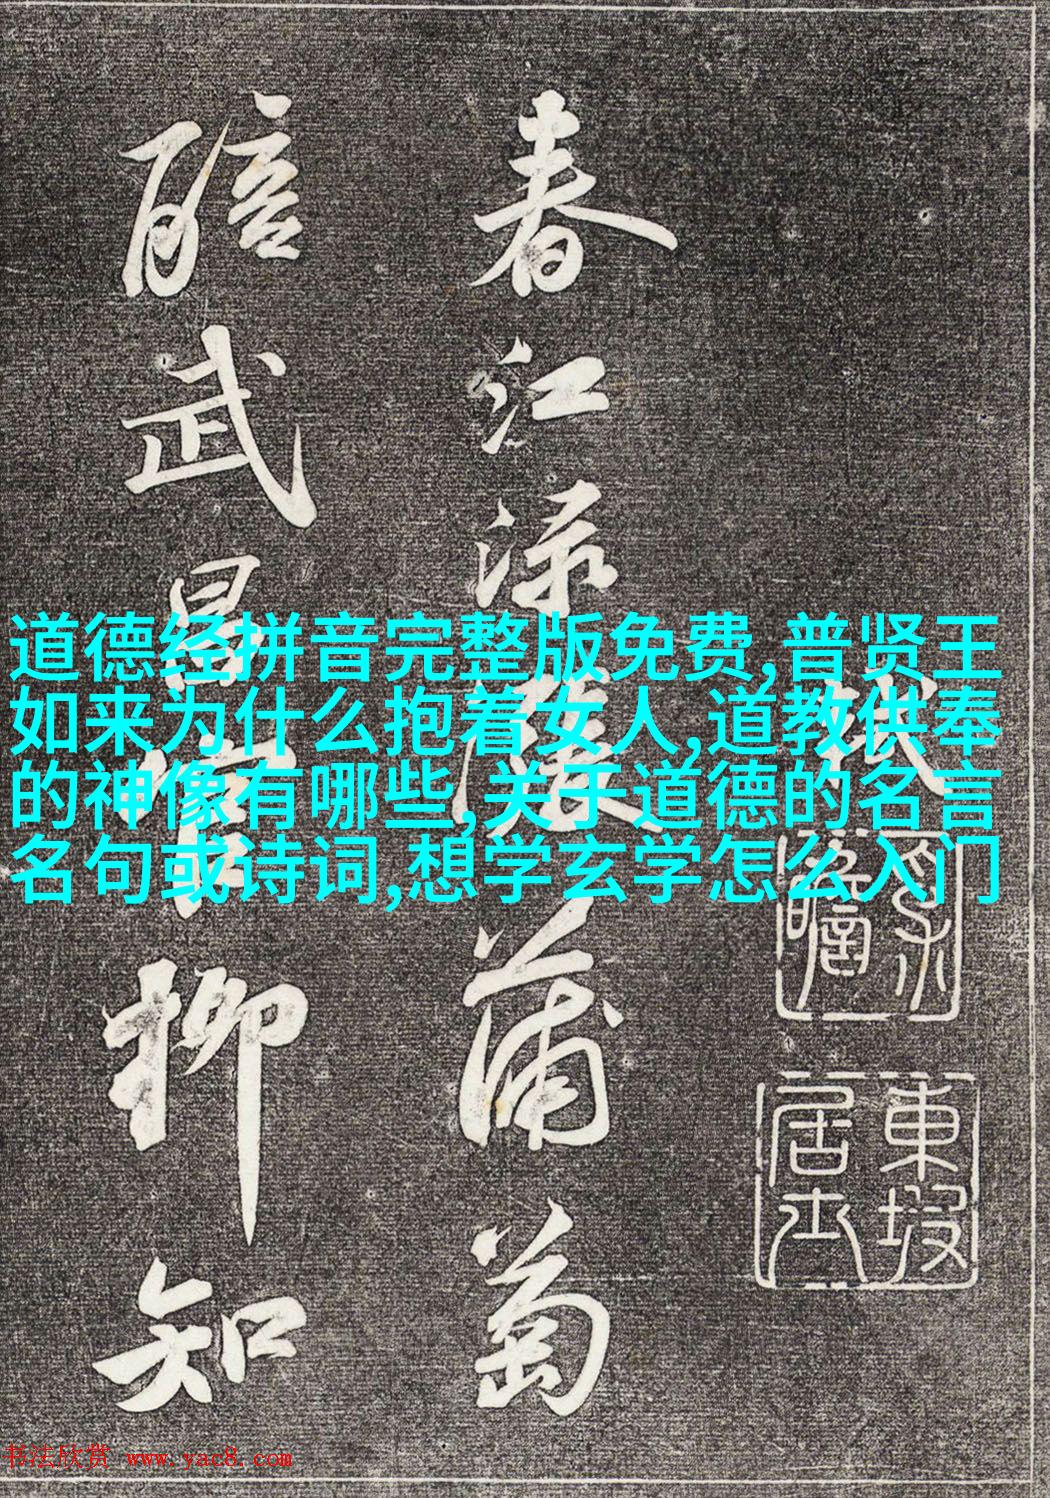 道德经拼音完整版免费,普贤王
如来为什么抱着女人,道教供奉
的神像有哪些,关于道德的名言
名句或诗词,想学玄学怎么入门
東坡
居士
春江渌漲蒲萄
醅武昌官柳知
书法欣赏 www.yac8.com